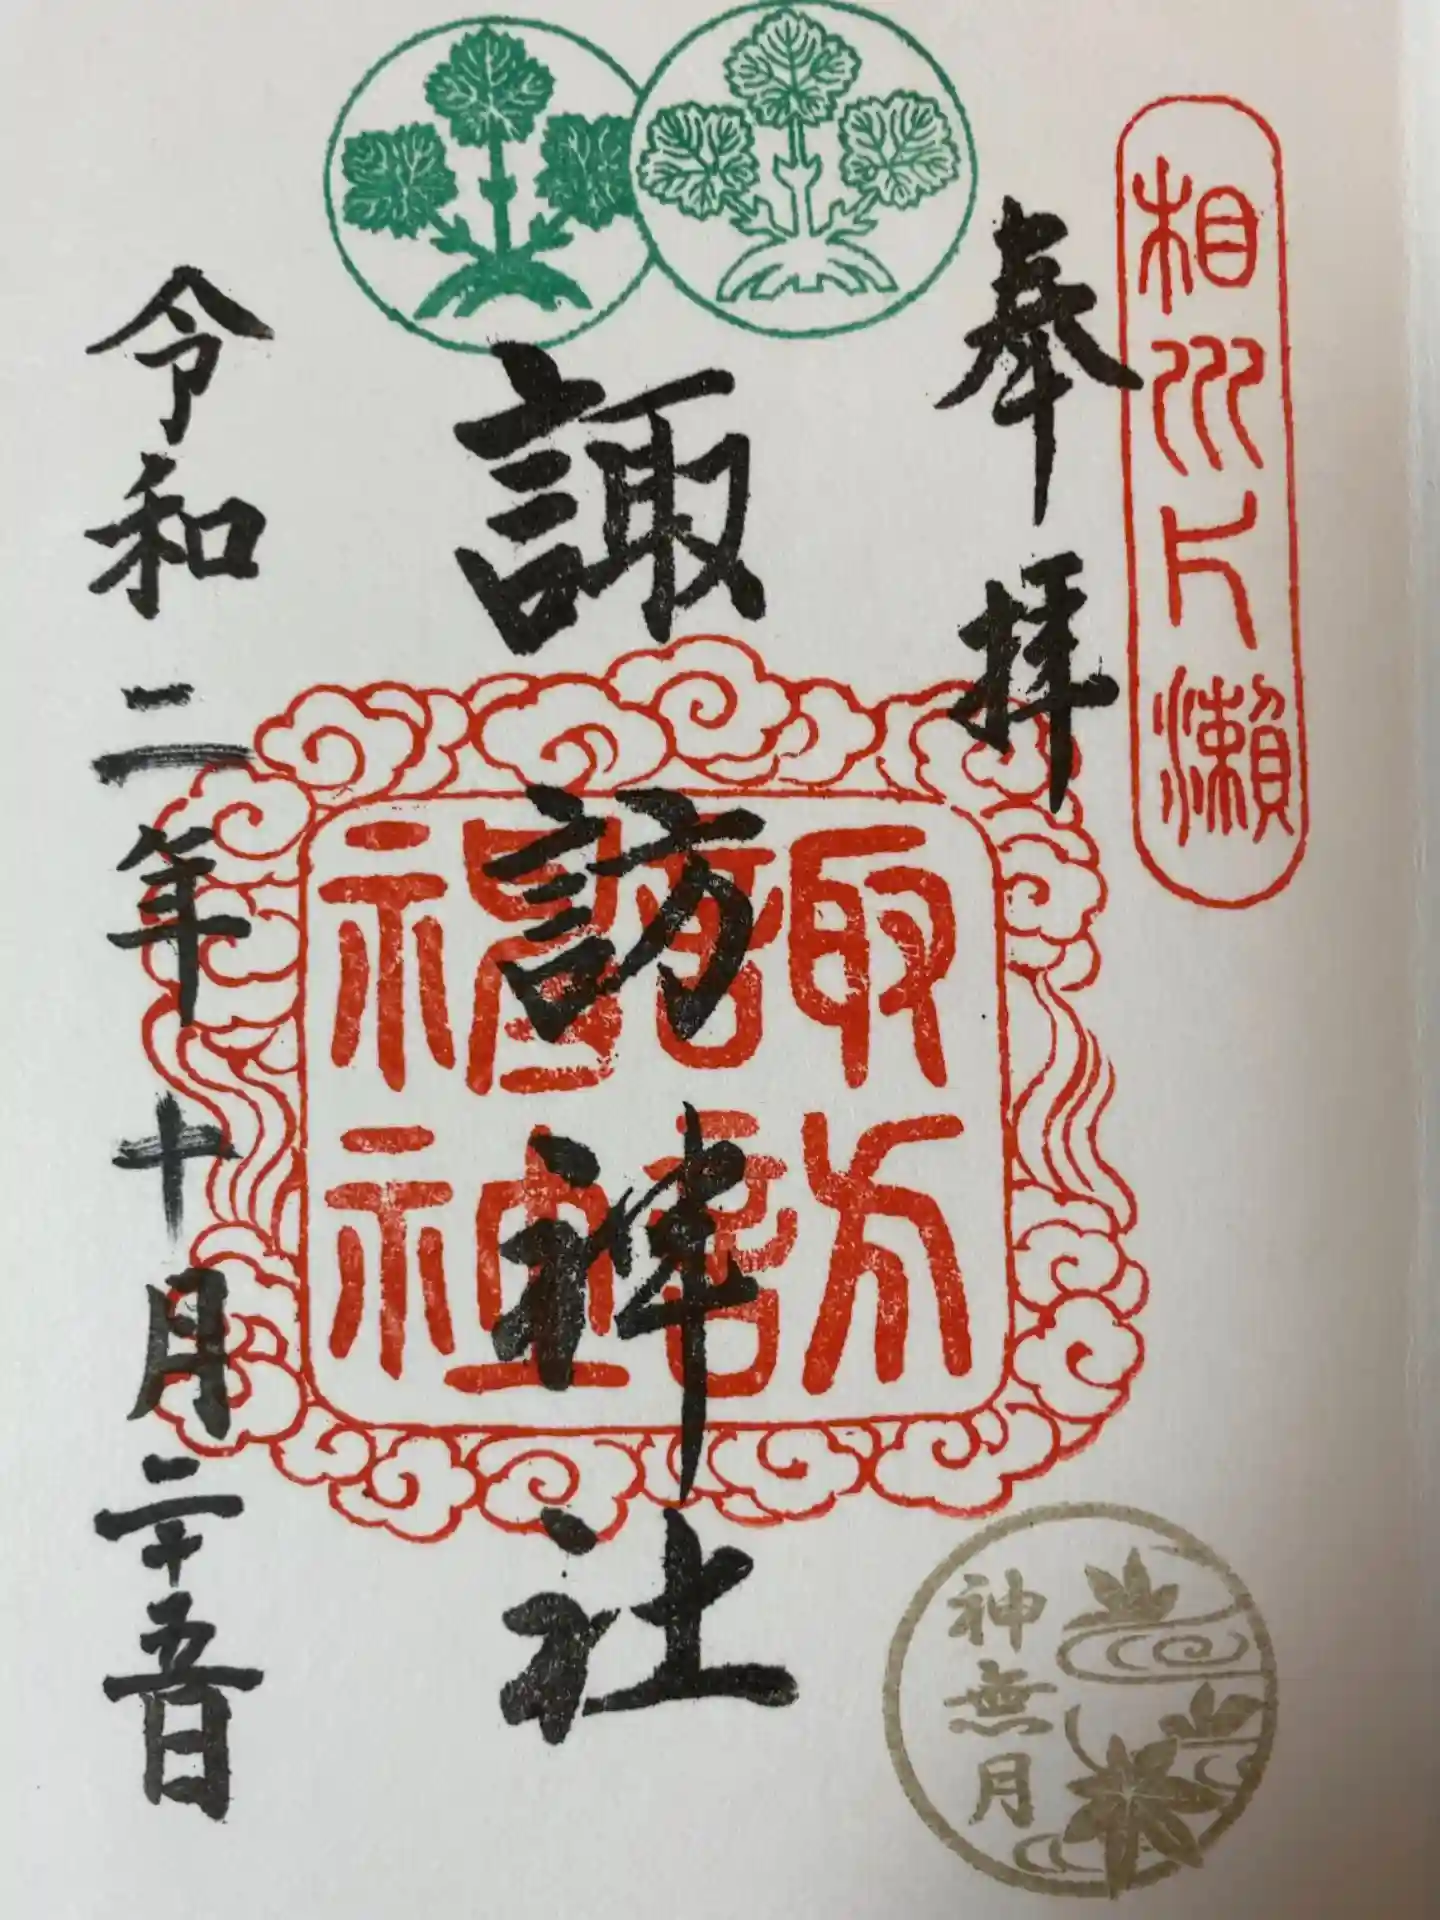 相州片瀬
奉拝
諏訪神社
諏訪
神社
令和二年十月二十五日
神無月